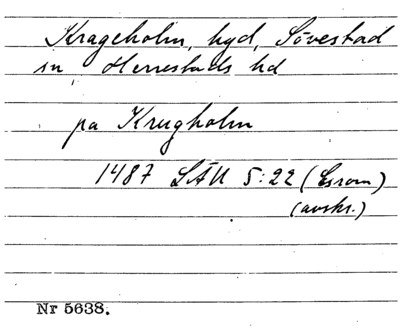 Krageholm, hgd, Sövestad
sn, Herrestads hd
pa Krugholm
1487 LÄU 5:22 (Esrom)
(avskr.)
Nr 5638.